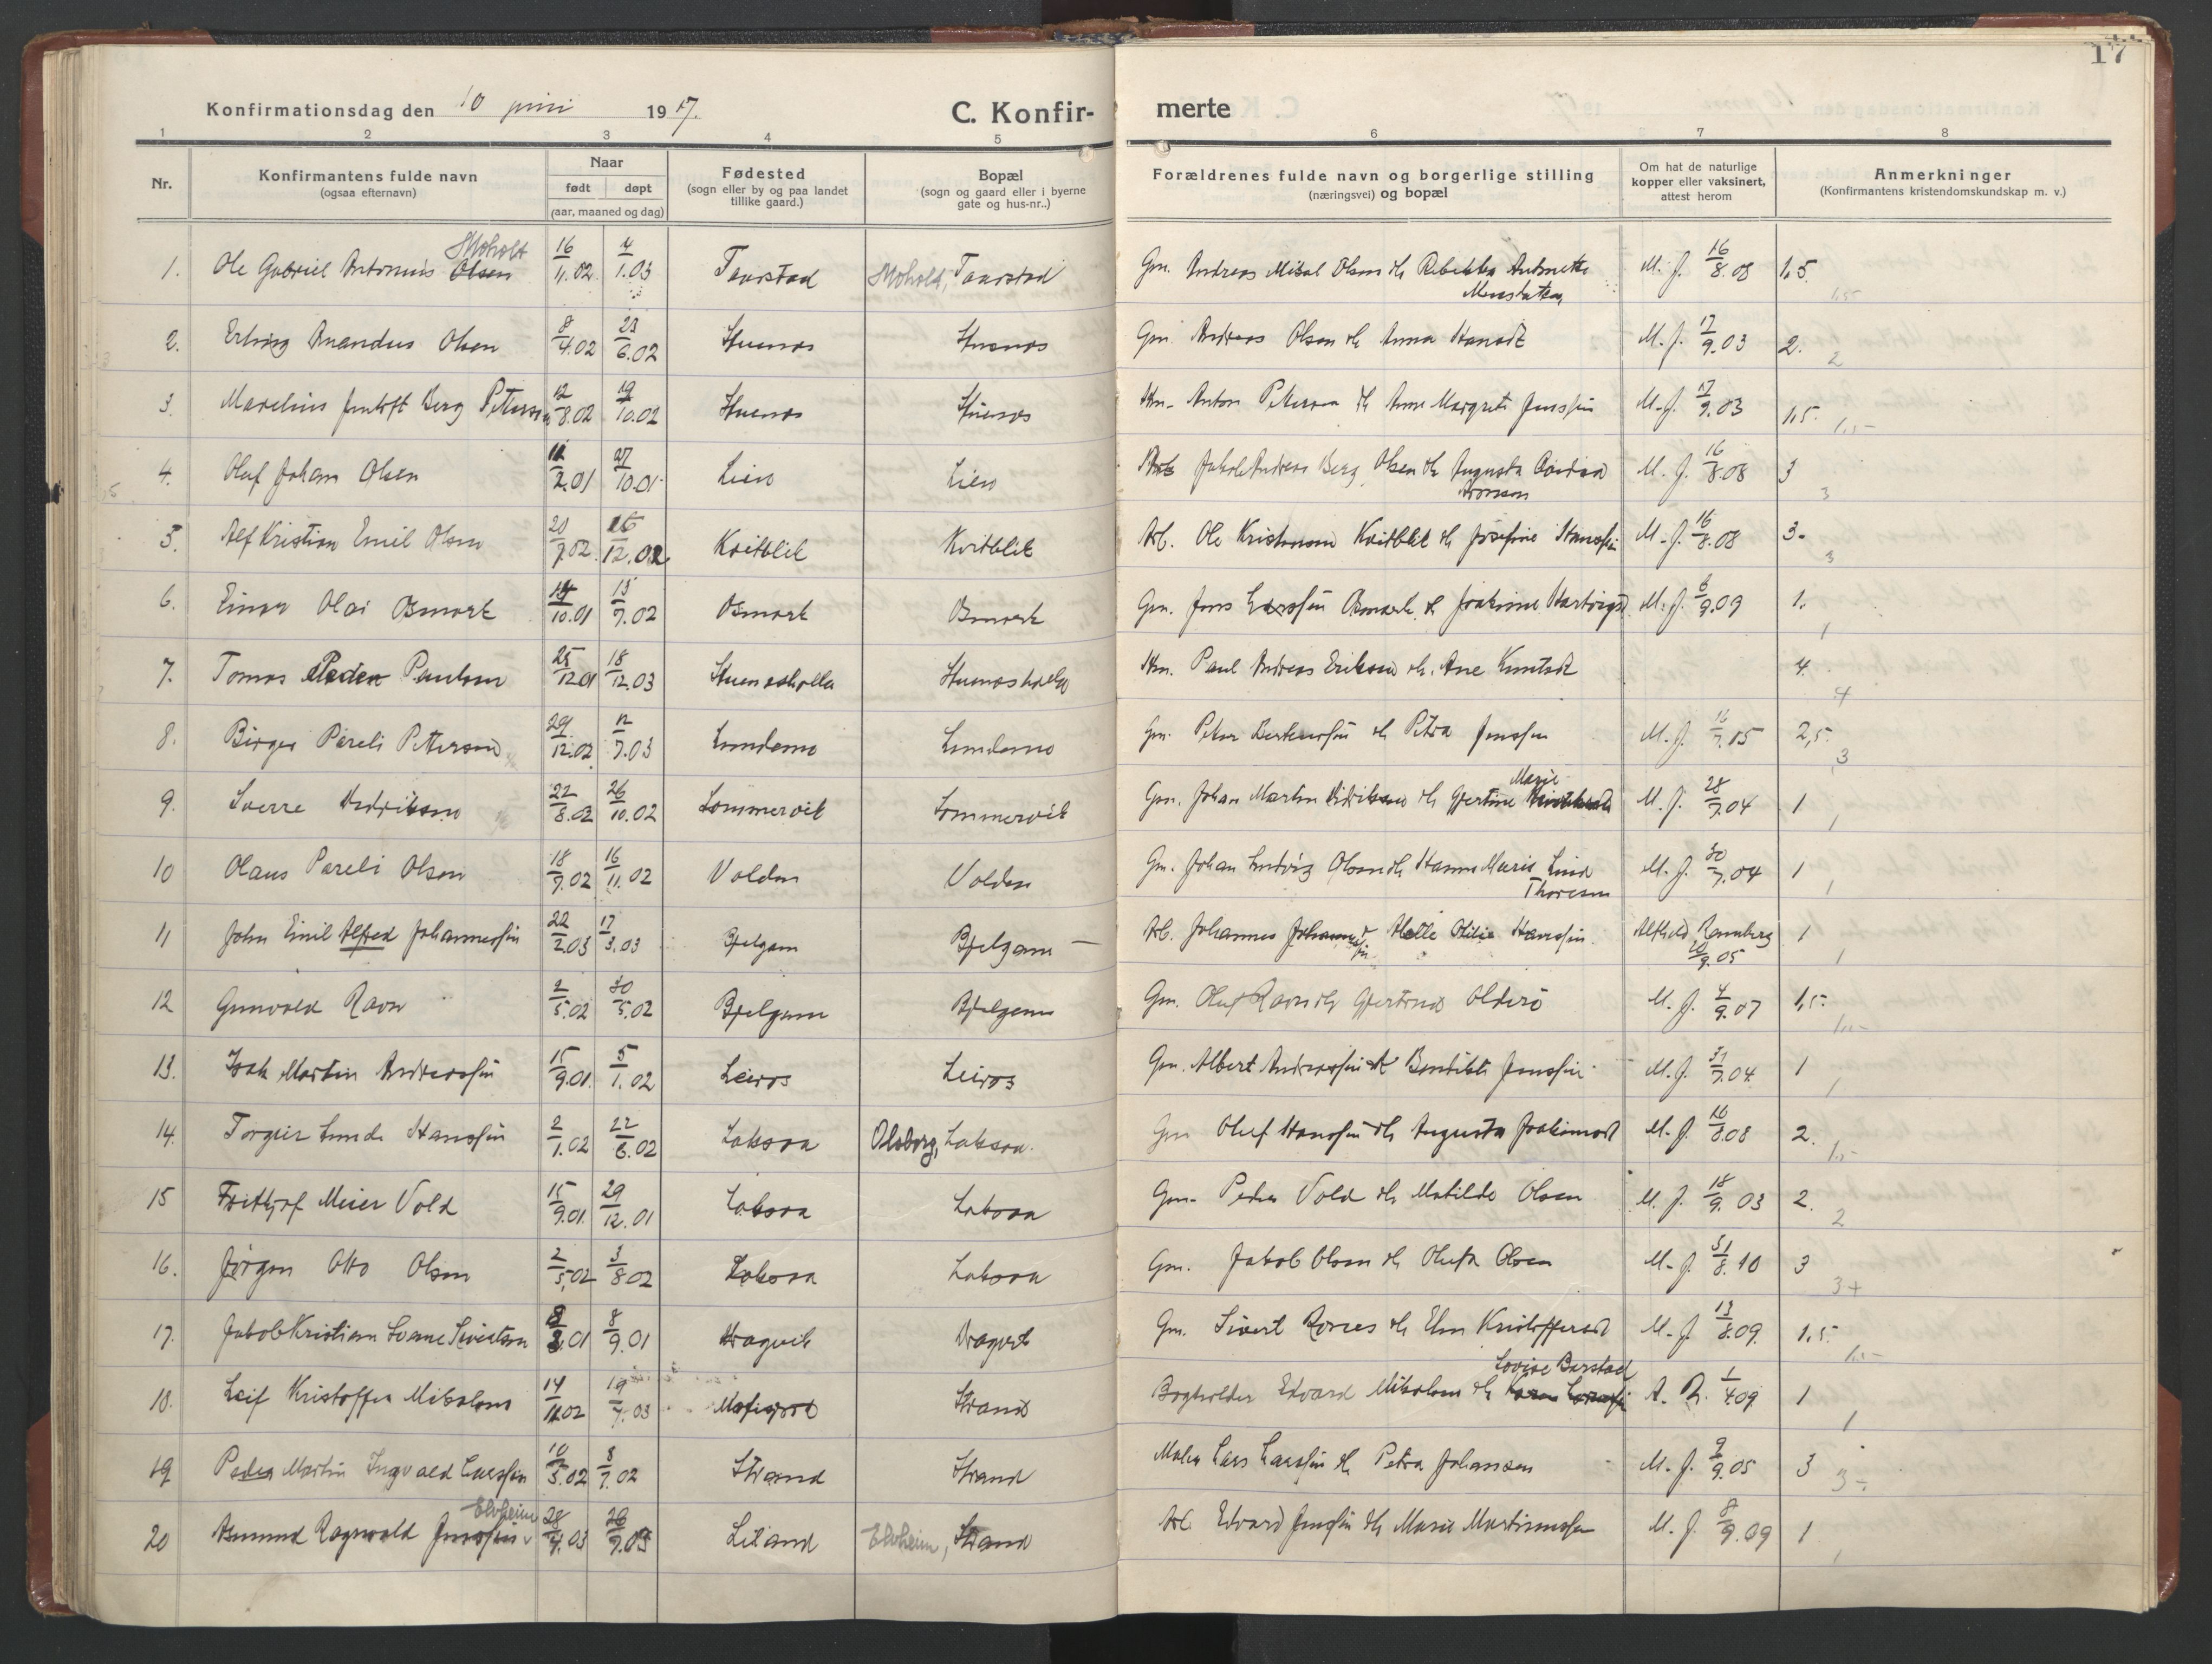 17
Konfirmationsdag den 10 juni 1917.
C. Konfir-
merte
1 2 3 4 5 6 7 8
Nr.
Konfirmantens fulde navn
(ogsaa efternavn)
Naar
født døpt
(aar, maaned og dag)
Fødested
(sogn eller by og paa landet
tillike gaard.)
Bopæl
(sogn og gaard eller i byerne
gate og hus-nr..)
Forældrenes fulde navn og borgerlige stilling
(næringsvei) og bopæl
Om hat de naturlige
kopper eller vaksinert,
attest herom
Anmerkninger
(Konfirmantens kristendomskundskap m. v.)
Moholt
1. Ole Gabriel Antonius Olsen 16/11.02 4/1.03 Taarstad Moholt, Taarstad Gm. Andreas Mikal Olsen & Rebekka Antonette M. J. 16/8.08 1,5
2. Erling Anandus Olsen 8/4.02 23/6.02 Stuenes Stuenes Gm. Andreas Olsen & Anna Hansdt M. J. 17/9.03 2. 2
3. Marelius Jentoft Berg Petersen 12/8.02 19/10.02 Stuenes Stuenes Anton Peterson & Anne Margrete Jenssen M. J. 17/9.03 1,5
4. Oluf Johan Olsen 2.01 27/10.01 Jakob Andreas Berg Olsen & Augusta M. J. 16/8.08 3 3
5. Alf Kristian Emil Olsen 20/7.02 12.02 Kvitblik Kvitblik Arb. Ole Kristensen Kvitblik & Josefine Hanssen M. J. 16/8.08 3 3
6. Einar Olai Osmark 14/10.01 13/7.02 Osmark Osmark Gm. Jens Larssen Osmark & Joakime Hartvigsd M. J. 6/9.09 1. 1
7. Tomas Peder Paulsen 25/12.01 18/12.03 Stueneshalla Stuenes Paul Andreas Eriksen & Ane Knutsdt 4. 4
8. Birger Pareli Pettersen 29/12.02 12/7.03 Lundemo Lundemo Gm. Peter Berteussen & Petra Jenssen M. J. 16/7.15 2,5 3
Marie
9. Sverre Vedriksen 22/8.02 26/10.02 Sommervik Sommervik Gm. Johan Martin Didriksen & Gjertine M. J. 28/7.04 1 1
10 Olaus Pareli Olsen 18/7.02 16/11.02 Volden Volden Gm. Johan Ludvig Olsen & Hanna Marie Lind M. J. 30/7.04 1 1
Thoresen
11 John Emil Alfred Johannessen 22/2.03 17/3.03 Bjelgam Bjelgam Arb. Johannes Johannessen & Helle Otilie Hanssen Alfhild Ramberg 1 1
20/9.05
12 Gunvald Ravn 2/5.02 30/5.02 Bjelgam Bjelgam Gm. Oluf Ravn & Gjertrud Olderø M. J. 4/9.07 1,5
13. Isak Martin Andreassen 15/9.01 5/1.02 Leiros Leiros Gm. Albert Andreassen & Bendikte Jenssen M. J. 31/7.04 1 1
14. Torgeir Lunde Hanssen 2/1.02 22/6.02 Laksaa Olsborg, Laksaa. Gm Oluf Hanssen & Augusta Joakimsdt M. J. 16/8.08 2.
15 Fritjof Meier Vold 15/9.01 29/12.01 Laksaa Laksaa Gm. Peder Vold & Matilde Olsen M. J. 18/9.03 2. 2
16. Jørgen Otto Olsen 2/5.02 3/8.02 Laksaa Laksaa Gm. Jakob Olsen & Olufa Olsen M. J. 31/8.10 3 3+
17. Jakob Kristian Svane Sivertsen .01 8/9.01 Dragvik Dragvik Gm. Sivert & Elen Kristoffersdt M. J. 13/8.09 1,5
Lovise Barstad
18. Leif Kristoffer Mikalsen 14/11.02 19/7.03 Strand Bogholder Edvard Mikalsen & A. R. 1/4.09 1 1
19 Peder Martin Ingvald Larssen 10/5.02 8/7.02 Strand Strand Maler Lars Larssen & Petra Johansen M. J. 9/9.05 3 3-
Elvheim
20 Asmund Ragnvald Jenssen 28/4.03 Liland Elvheim, Strand Arb. Edvard Jenssen & Marie Martinussen M. J. 8/9.09 1 1